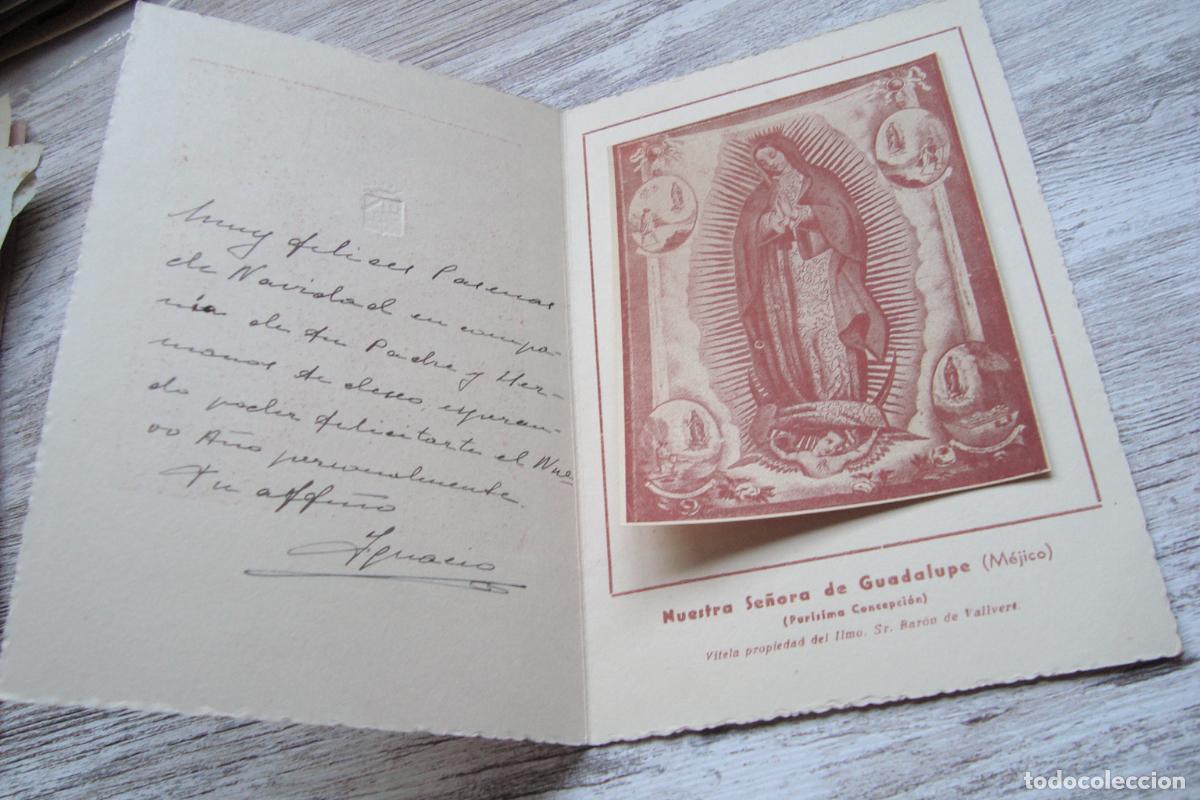 Muy felices Pascuas
de Navidad en compa-
ñia de tu Padre y Her-
manos te deseo, esperan-
do poder felicitarte el Nue-
vo Año personalmente.
Tu affmo
Ignacio
Nuestra Señora de Guadalupe (Méjico)
(Purísima Concepción)
Vitela propiedad del Ilmo. Sr. Barón de Vallvert.
todocoleccion